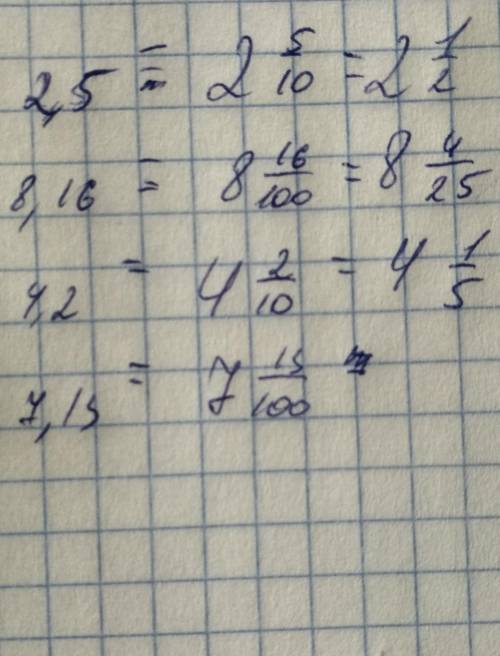 2,5 = 2 5/10 = 2 1/2
8,16 = 8 16/100 = 8 4/25
4,2 = 4 2/10 = 4 1/5
7,15 = 7 15/100 =